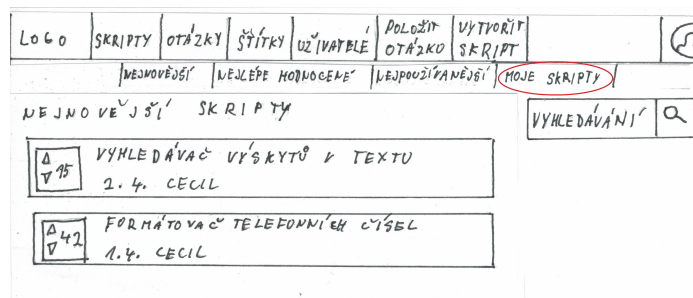 LOGO SKRIPTY OTÁZKY ŠTÍTKY UŽIVATELÉ POLOŽIT OTÁZKO VYTVOŘIT SKRIPT
NEJNOVĚJŠÍ NEJLÉPE HODNOCENÉ NEJPOUŽÍVANĚJŠÍ MOJE SKRIPTY
NEJNOVĚJŠÍ SKRIPTY
VYHLEDÁVÁNÍ
15 VYHLEDÁVAČ VÝSKYTŮ V TEXTU
2. 4. CECIL
42 FORMÁTOVAČ TELEFONNÍCH ČÍSEL
1. 4. CECIL